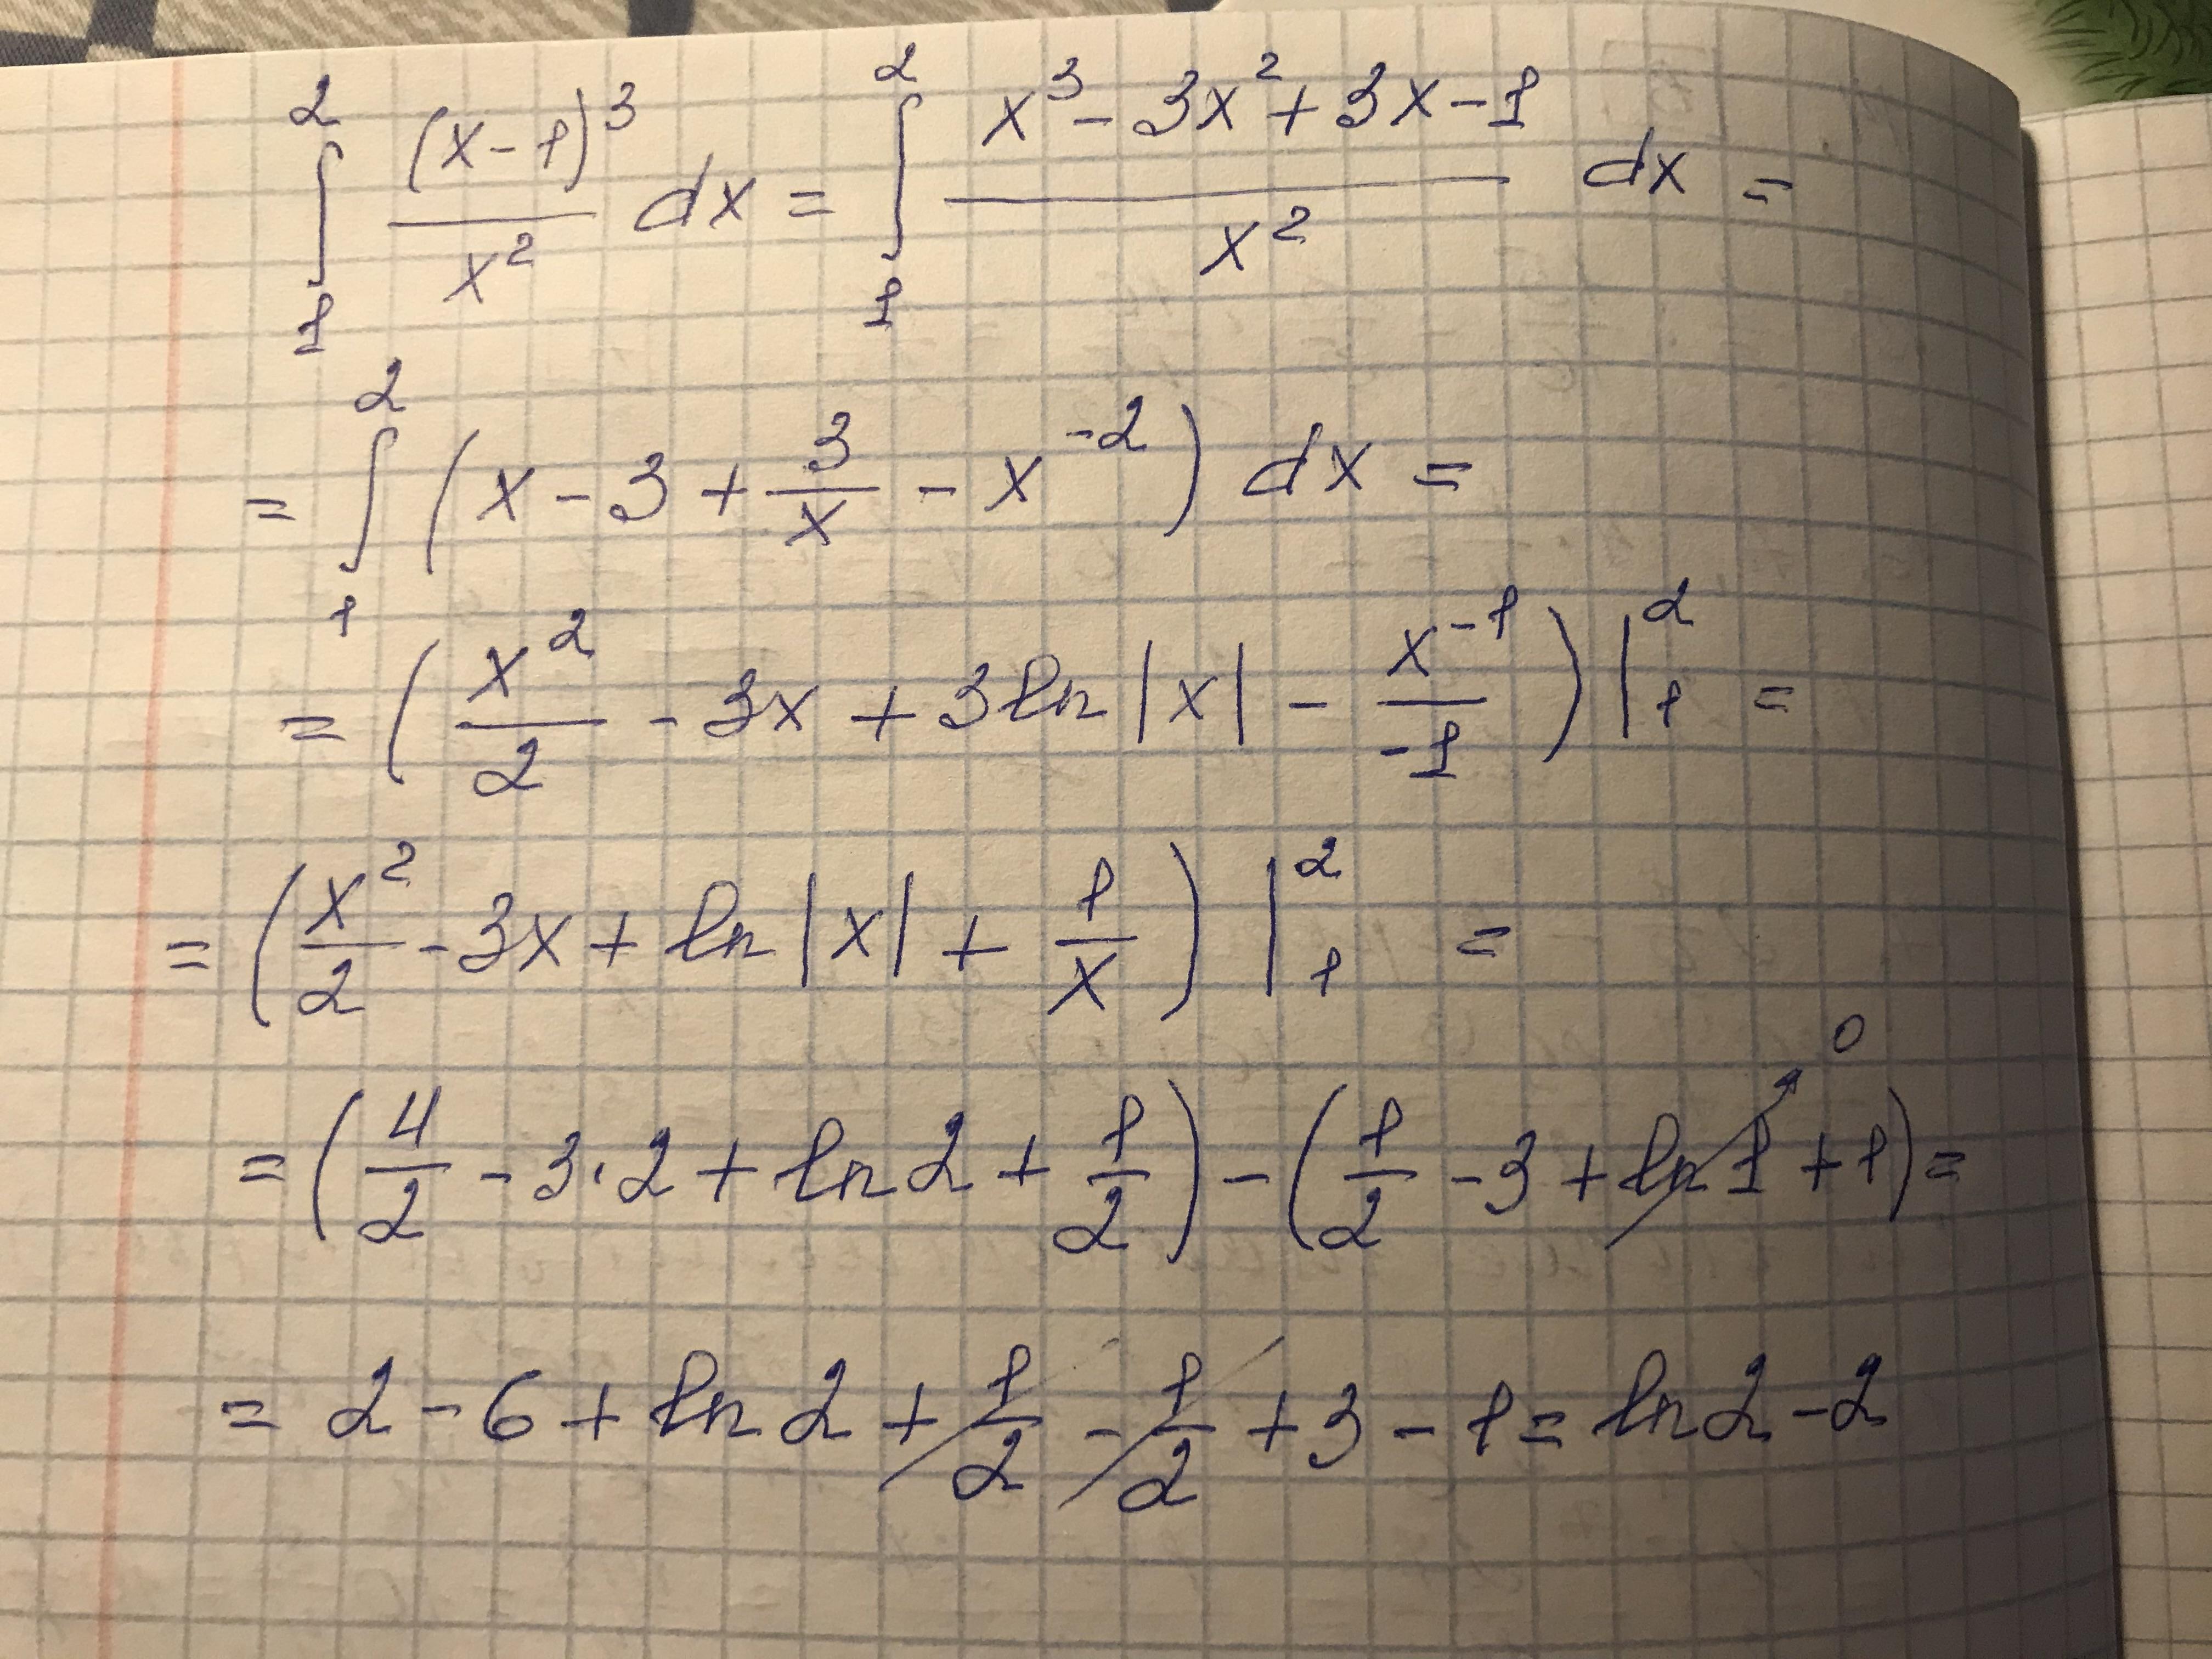 ∫₁² (x-1)³/x² dx = ∫₁² (x³ - 3x² + 3x - 1)/x² dx =
= ∫₁² (x - 3 + 3/x - x⁻²) dx =
= (x²/2 - 3x + 3ln|x| - x⁻¹/-1)|₁² =
= (x²/2 - 3x + ln|x| + 1/x)|₁² =
= (4/2 - 3·2 + ln2 + 1/2) - (1/2 - 3 + ln1 + 1) = 0
= 2 - 6 + ln2 + 1/2 - 1/2 + 3 - 1 = ln2 - 2